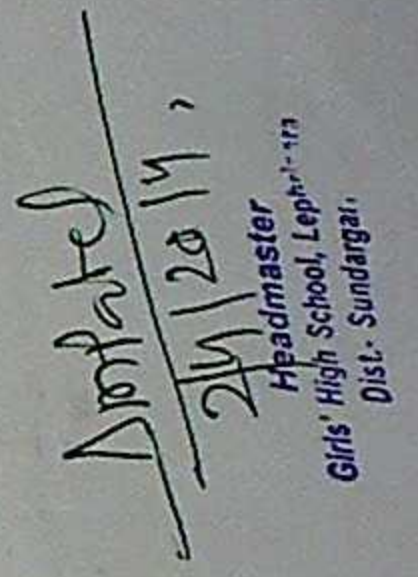 2/4/2014,
Headmaster
Girls' High School,
Dist. Sundargarh